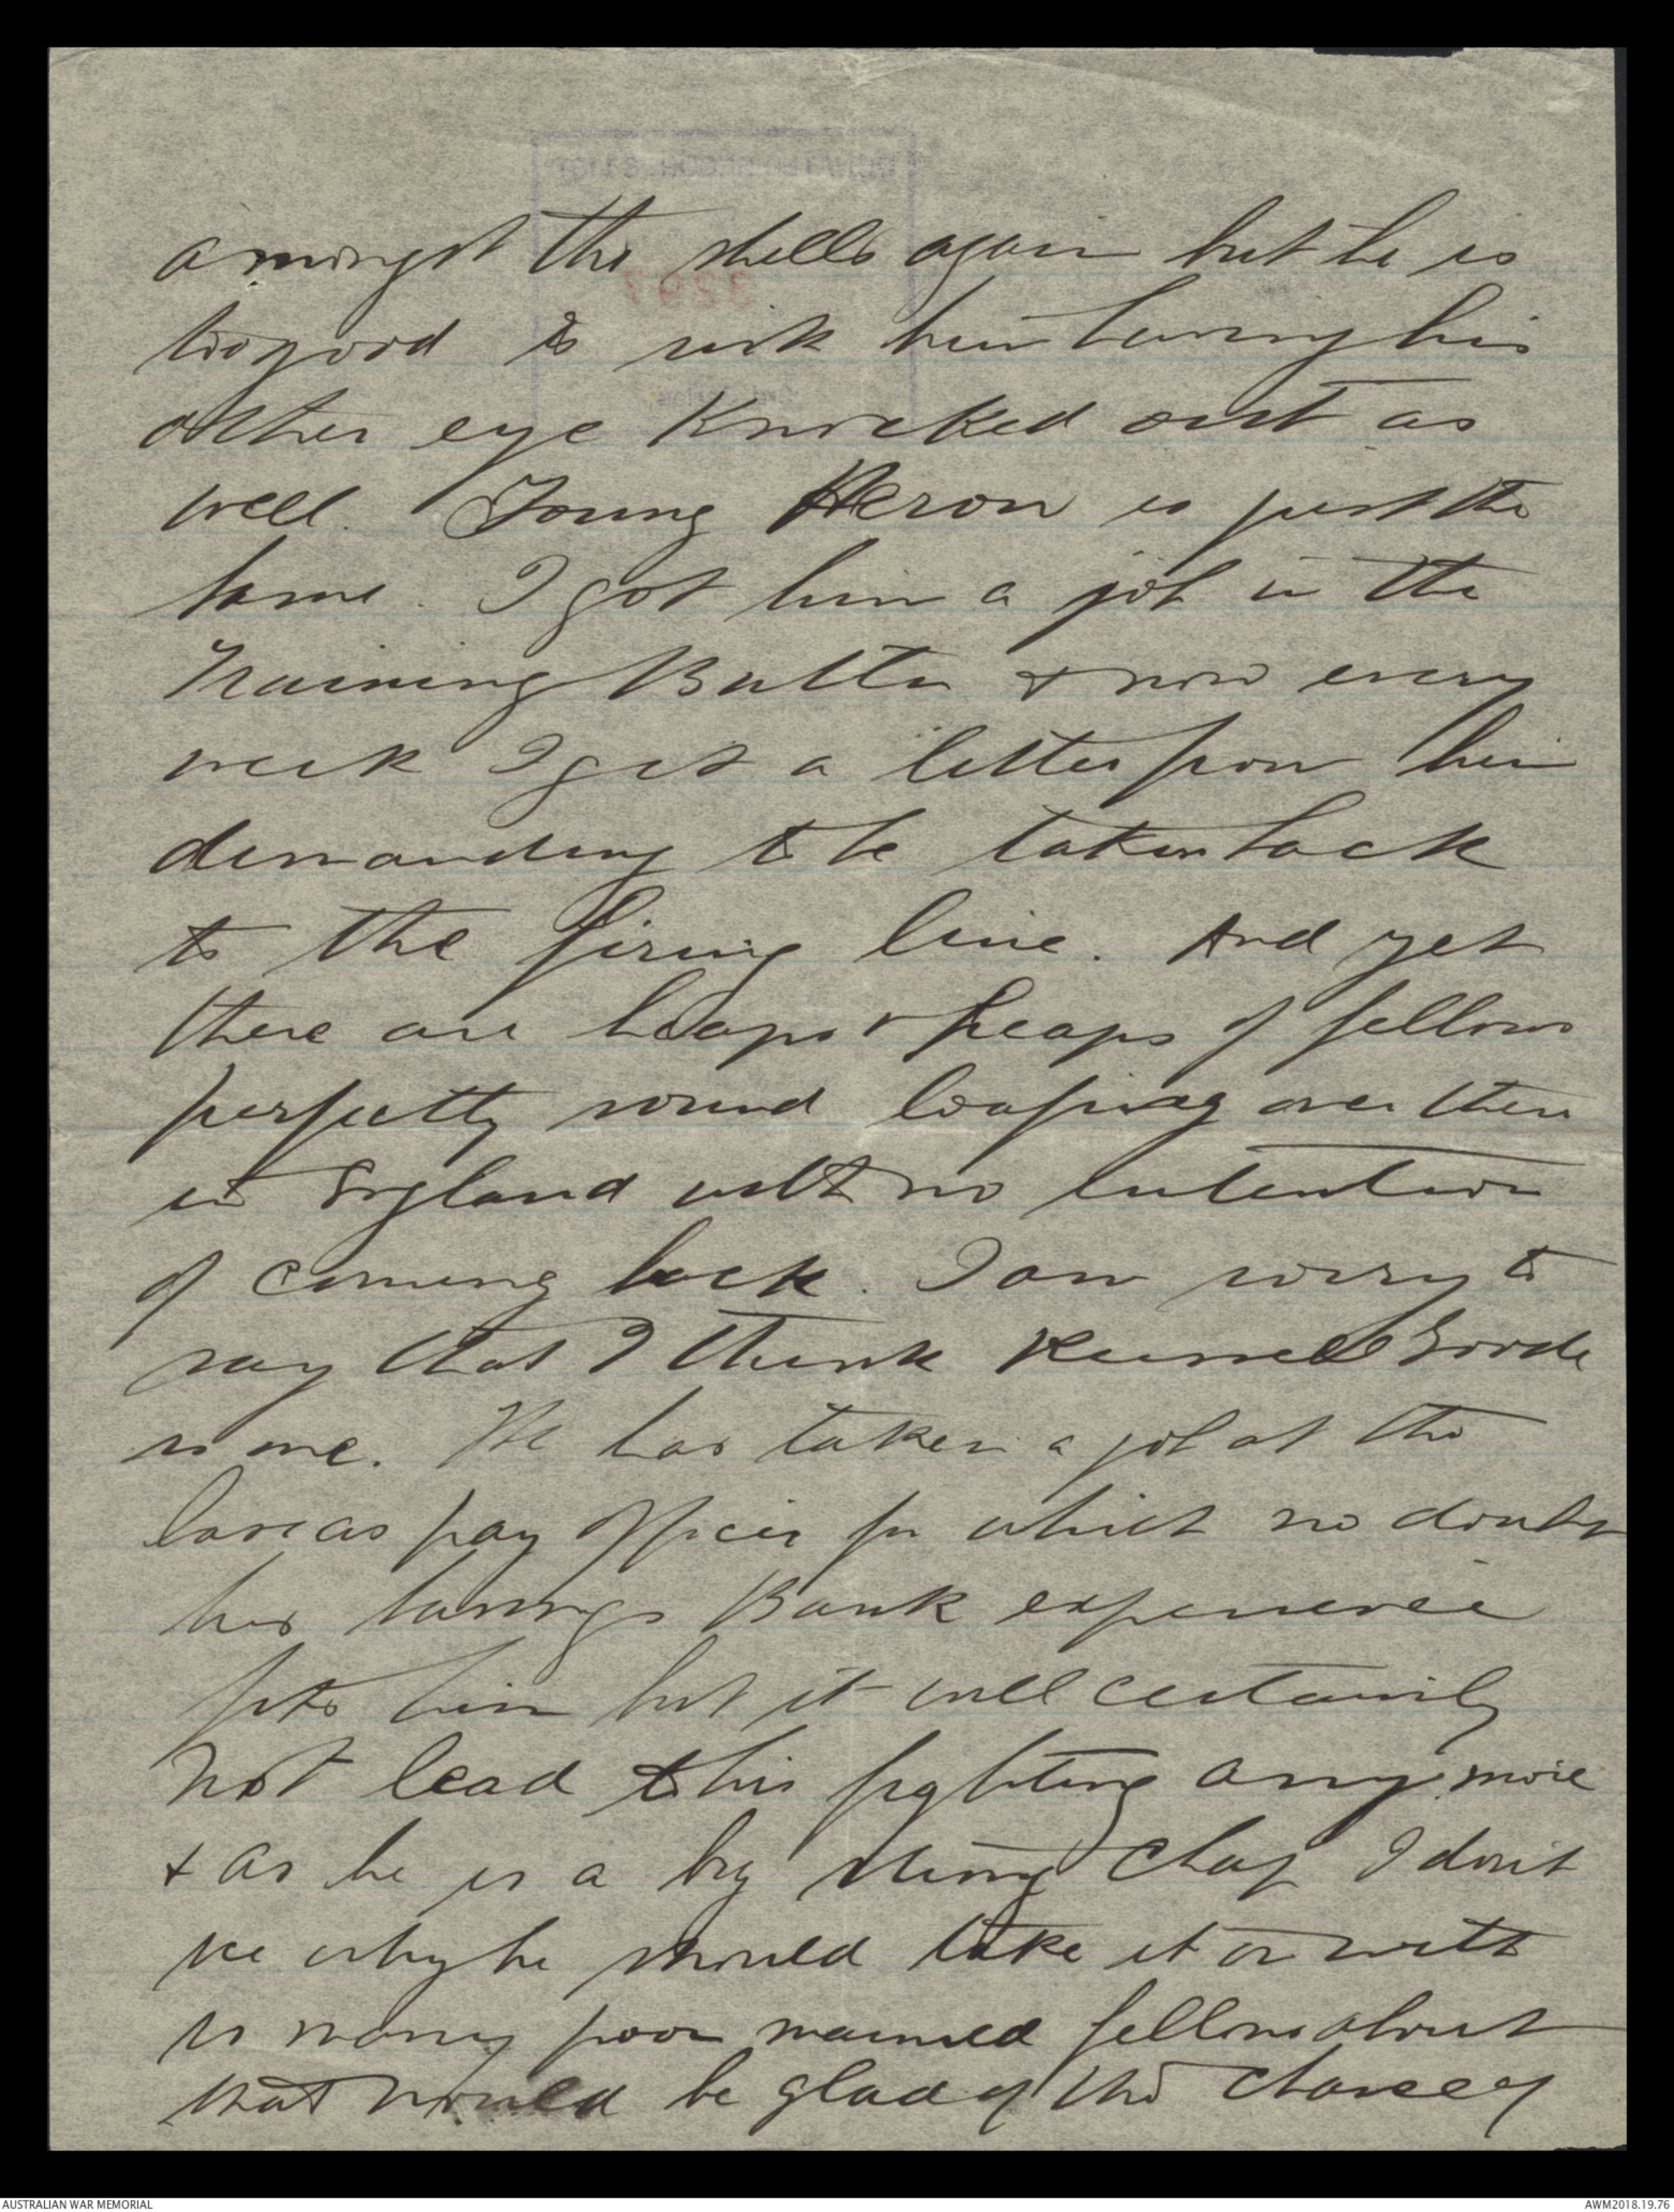 amongst the shells again but he is
too good to risk him having his
other eye knocked out as
well. Young Heron is just the
same. I got him a job in the
Training Battn & now every
week I get a letter from him
demanding to be taken back
to the firing line. And yet
there are heaps & heaps of fellows
perfectly sound loafing over there
in England with no intention
of coming back. I am sorry to
say that I think Russell Goode
is one. He has taken a job at the
base as pay officer for which no doubt
his Savings Bank experience
fits him but it will certainly
not lead to his fighting any more
& as he is a big strong chap I don't
see why he should take it on with
so many poor maimed fellows about
that would be glad of the chance of
3297
AUSTRALIAN WAR MEMORIAL
AWM2018.19.76